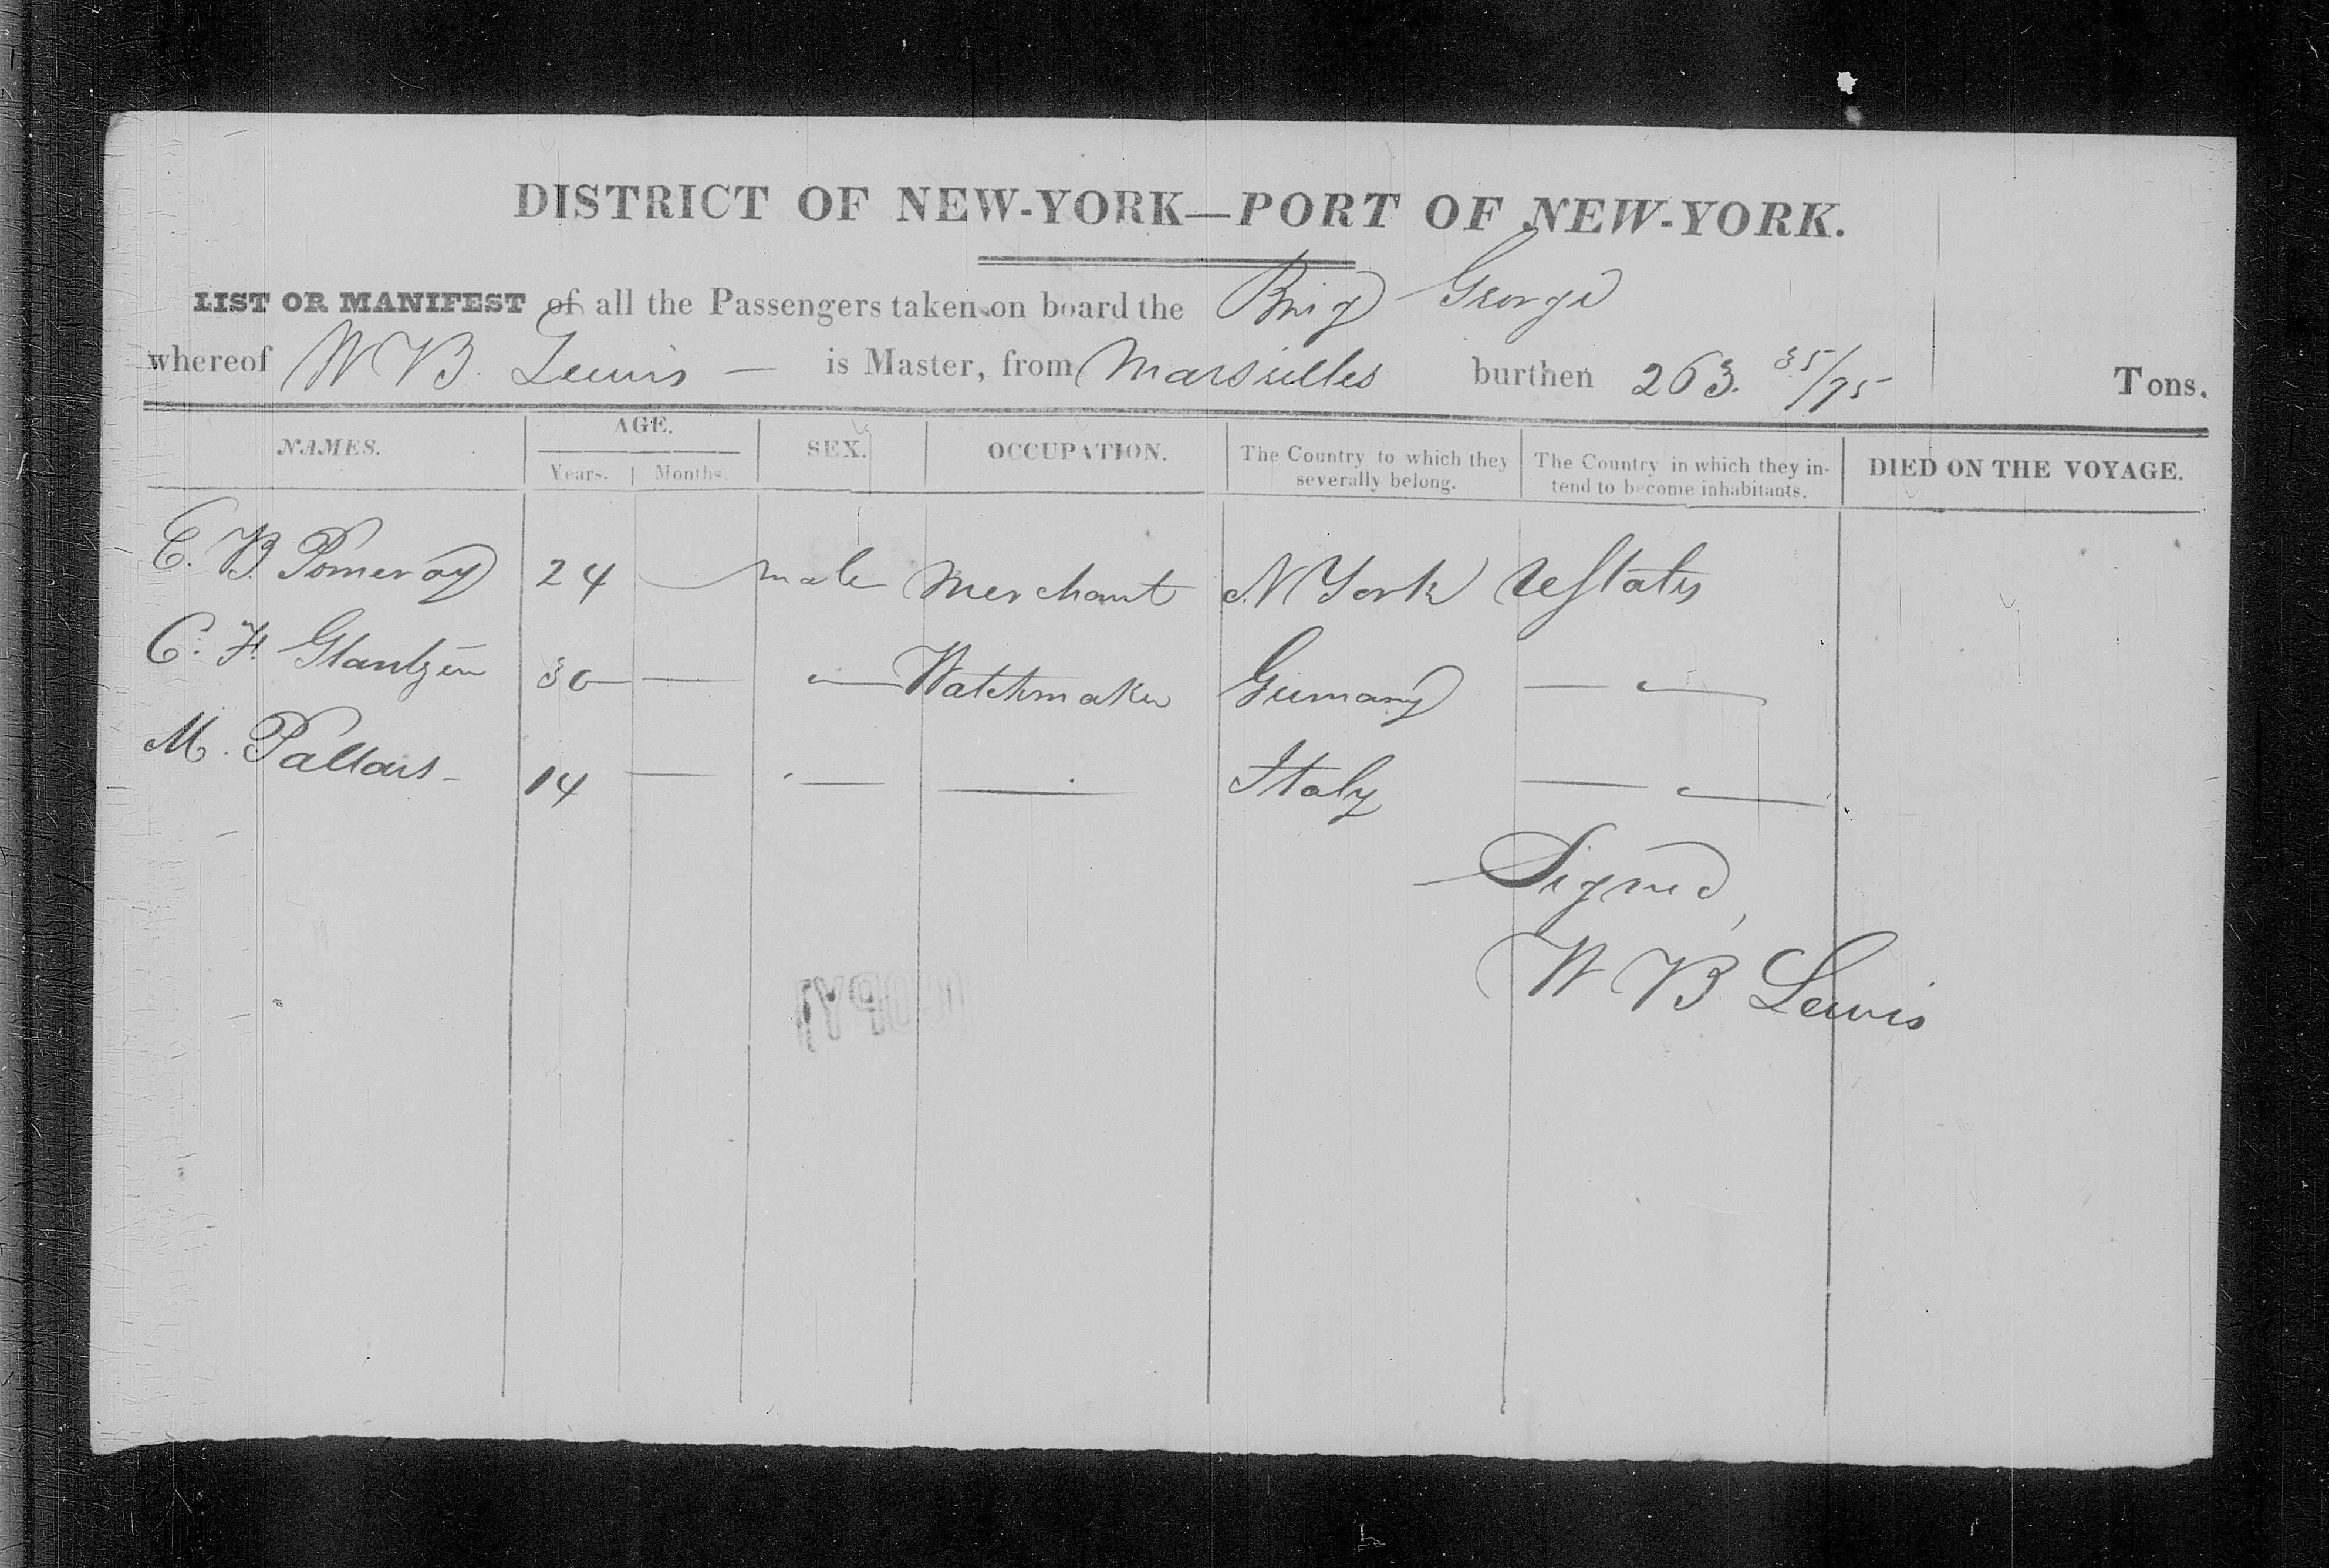 DISTRICT OF NEW-YORK—PORT OF NEW-YORK.
LIST OR MANIFEST of all the Passengers taken on board the Brig George
whereof W B. Lewis — is Master, from Marseilles burthen 263. 35/95 Tons.
NAMES. AGE. SEX. OCCUPATION. The Country to which they severally belong. The Country in which they intend to become inhabitants. DIED ON THE VOYAGE.
Years. Months.
E. B. Pomeroy 24 — male Merchant N York UStates
C. F. Glantzen 30 — — Watchmaker Germany — —
M. Pallais - 14 — — — Italy — —
Signed,
W B Lewis
[COPY]